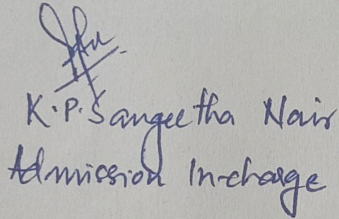 K.P. Sangeetha Nair
Admission In-charge